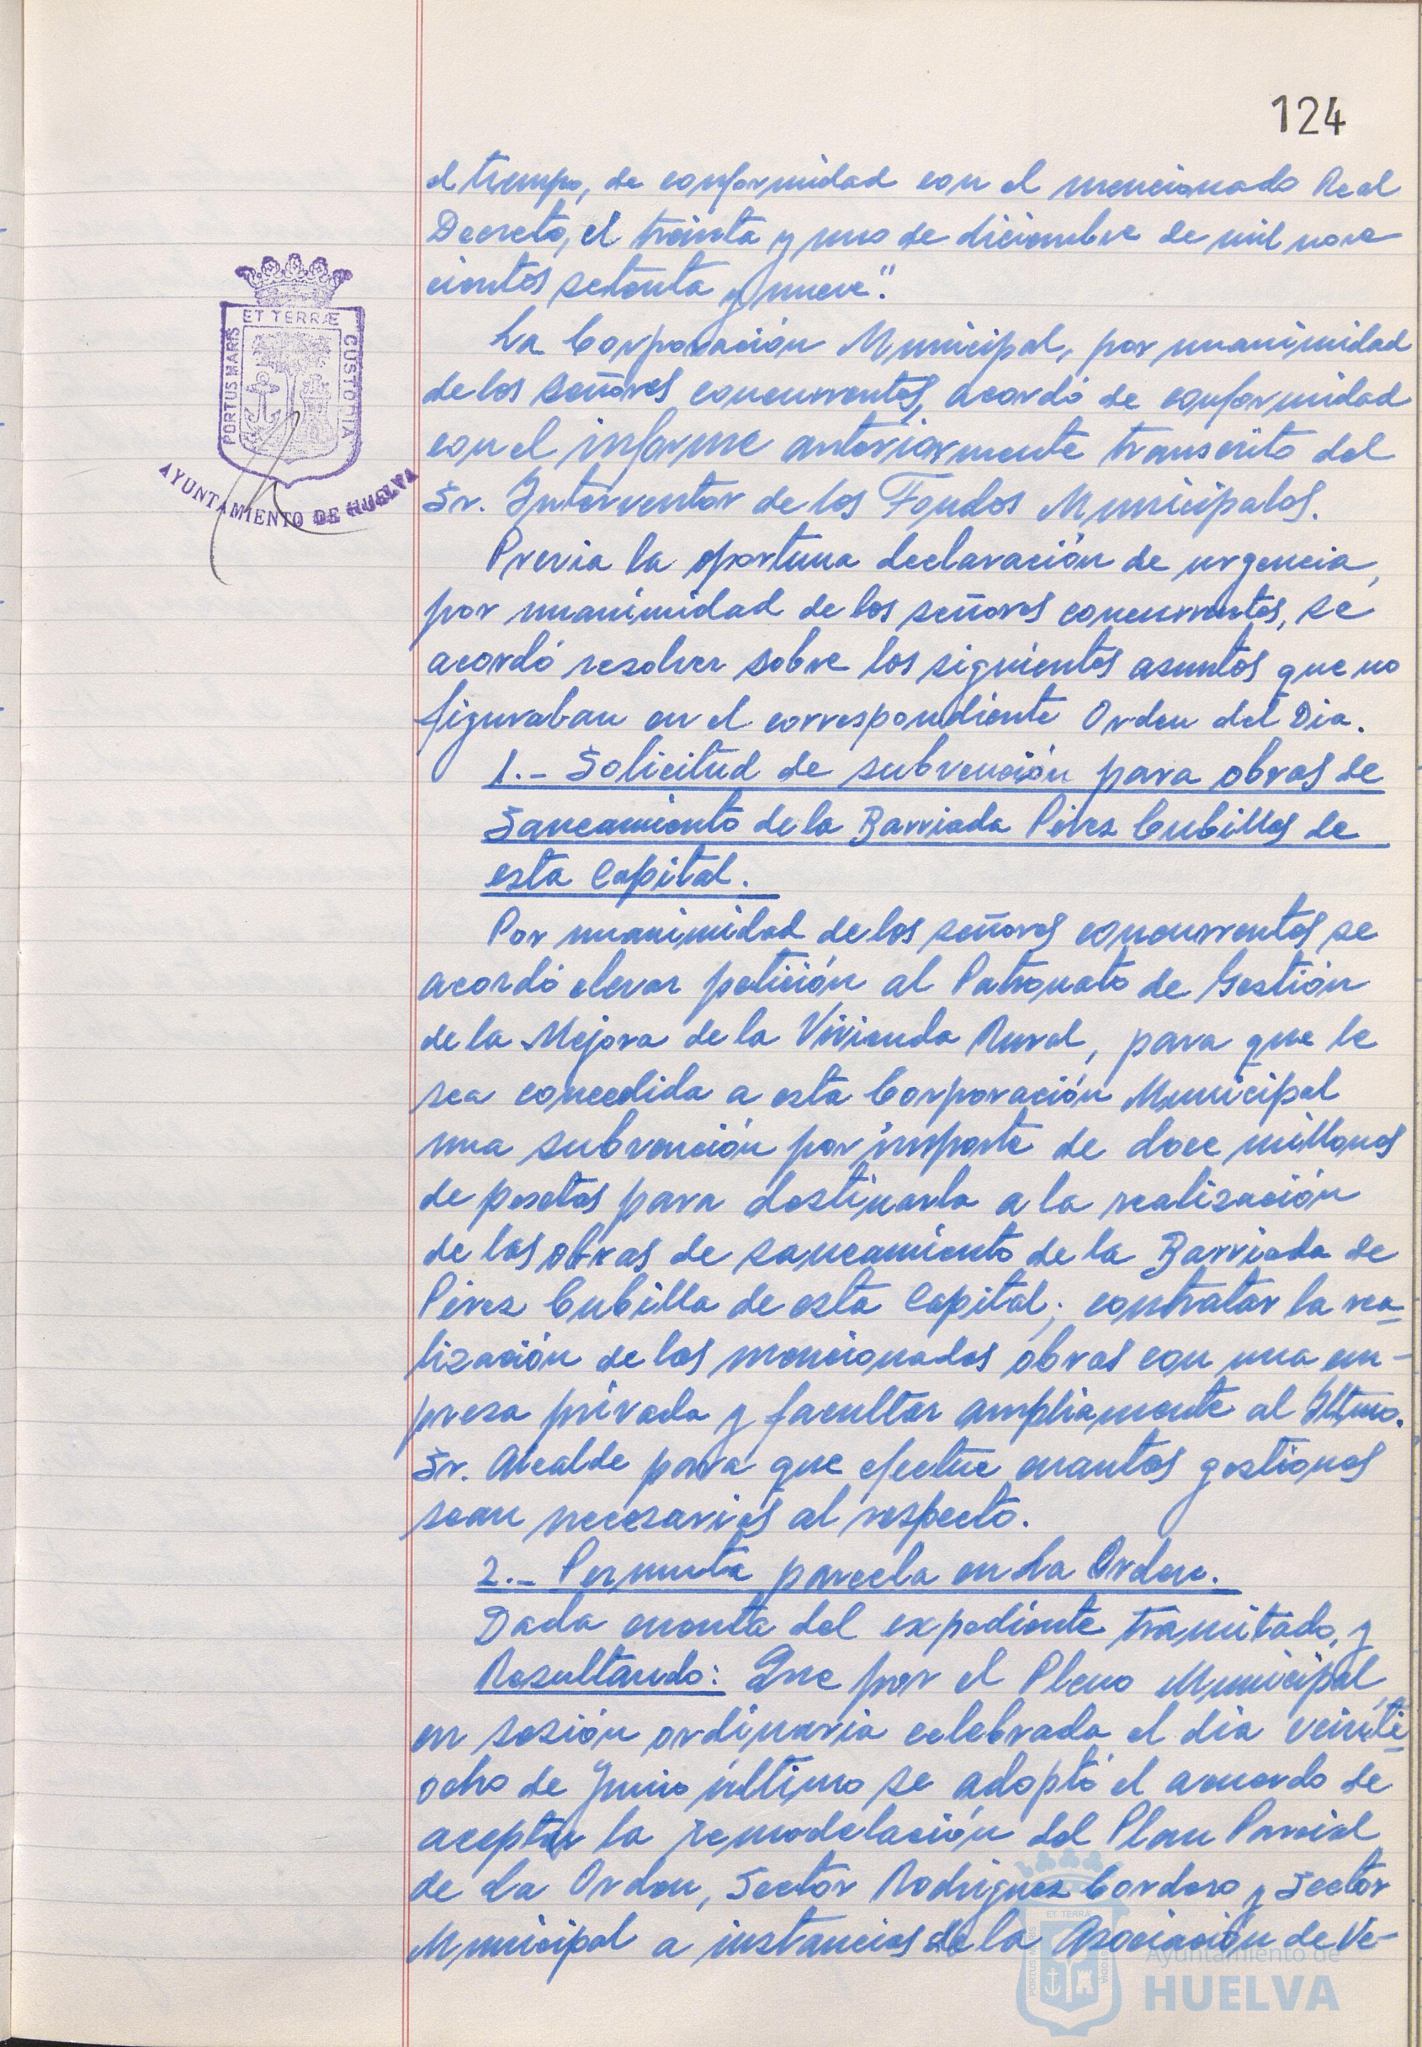 124
el tiempo, de conformidad con el mencionado Real
Decreto, el treinta y uno de diciembre de mil nove
cientos setenta y nueve".
La Corporación Municipal, por unanimidad
de los señores concurrentes, acordó de conformidad
con el informe anteriormente transcrito del
Sr. Interventor de los Fondos Municipales.
Previa la oportuna declaración de urgencia,
por unanimidad de los señores concurrentes, se
acordó resolver sobre los siguientes asuntos que no
figuraban en el correspondiente Orden del Dia.
1.- Solicitud de subvención para obras de
Saneamiento de la Barriada Pérez Cubillas de
esta Capital.
Por unanimidad de los señores concurrentes se
acordó elevar petición al Patronato de Gestión
de la Mejora de la Vivienda Rural, para que le
sea concedida a esta Corporación Municipal
una subvención por importe de doce millones
de pesetas para destinarla a la realización
de las obras de saneamiento de la Barriada de
Pérez Cubilla de esta Capital; contratar la rea-
lización de las mencionadas obras con una em-
presa privada y facultar ampliamente al Iltmo.
Sr. Alcalde para que efectúe cuantas gestiones
sean necesarias al respecto.
2.- Permuta parcela en La Orden.
Dada cuenta del expediente tramitado, y
Resultando: Que por el Pleno Municipal,
en sesión ordinaria celebrada el dia veinti-
ocho de Junio último se adoptó el acuerdo de
aceptar la remodelación del Plan Parcial
de La Orden, Sector Rodriguez Cordero y Sector
Municipal a instancias de la Asociación de Ve-
PORTUS MARIS
ET TERRÆ
CUSTODIA
AYUNTAMIENTO DE HUELVA
PORTUS MARIS
ET TERRÆ
CUSTODIA
Ayuntamiento de
HUELVA